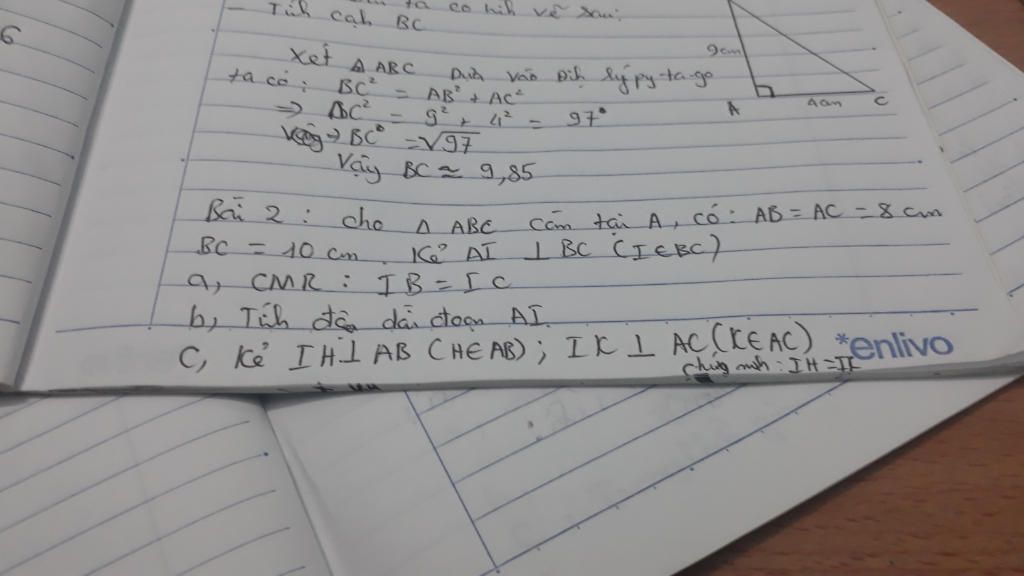 6
- Tính cạnh BC
ta có hình vẽ sau:
9cm
A
4cm
C
Xét △ ABC Dựa vào Định lý py-ta-go
ta có: BC² = AB² + AC²
⇒ BC² = 9² + 4² = 97
⇒ BC = √97
Vậy BC ≈ 9,85
Bài 2 : cho △ ABC cân tại A, có: AB = AC = 8 cm
BC = 10 cm. Kẻ AI ⊥ BC (I∈BC)
a, CMR : IB = IC
b, Tính độ dài đoạn AI.
c, Kẻ IH ⊥ AB (H∈AB) ; IK ⊥ AC (K∈AC)
chứng minh : IH = IK
*enlivo